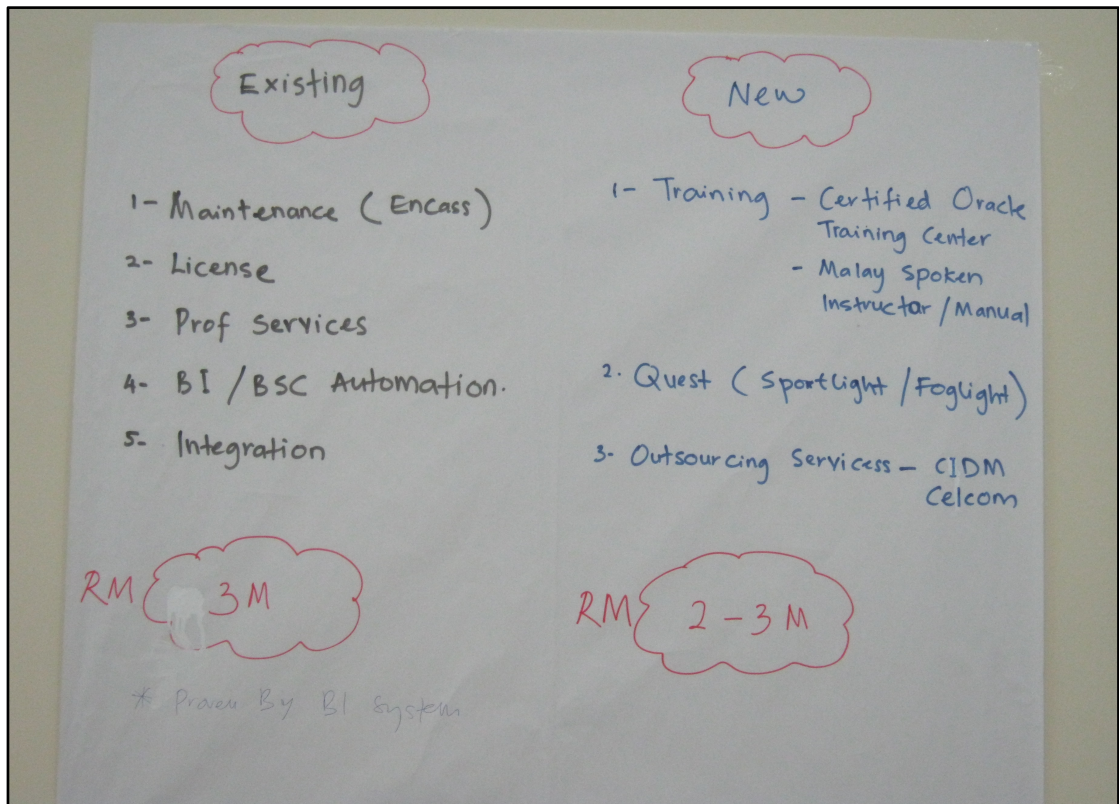 Existing
1- Maintenance (Encass)
2- License
3- Prof Services
4- BI / BSC Automation.
5- Integration
RM 3 M
* Proven By BI System
New
1- Training - Certified Oracle
Training Center
- Malay Spoken
Instructor / Manual
2. Quest (Sportlight / Foglight)
3- Outsourcing Servicess - CIDM
Celcom
RM 2 - 3 M